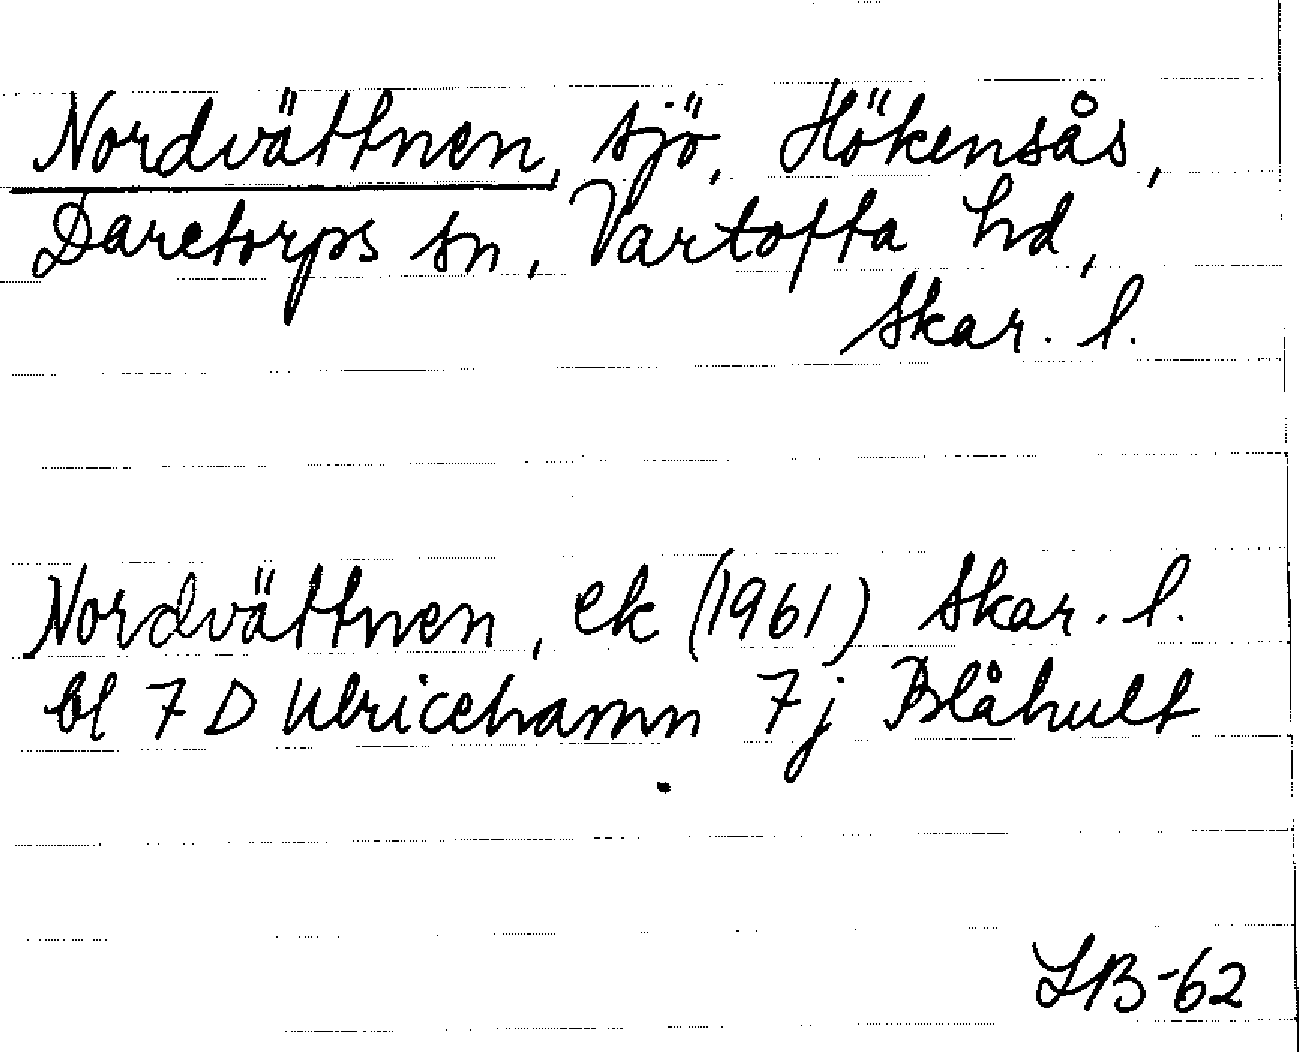 Nordvättnen, sjö, Hökensås,
Daretorps sn, Vartofta hd,
Skar. l.
Nordvättnen, ek (1961) Skar. l.
bl 7 D Ulricehamn 7j Blåhult
LB-62